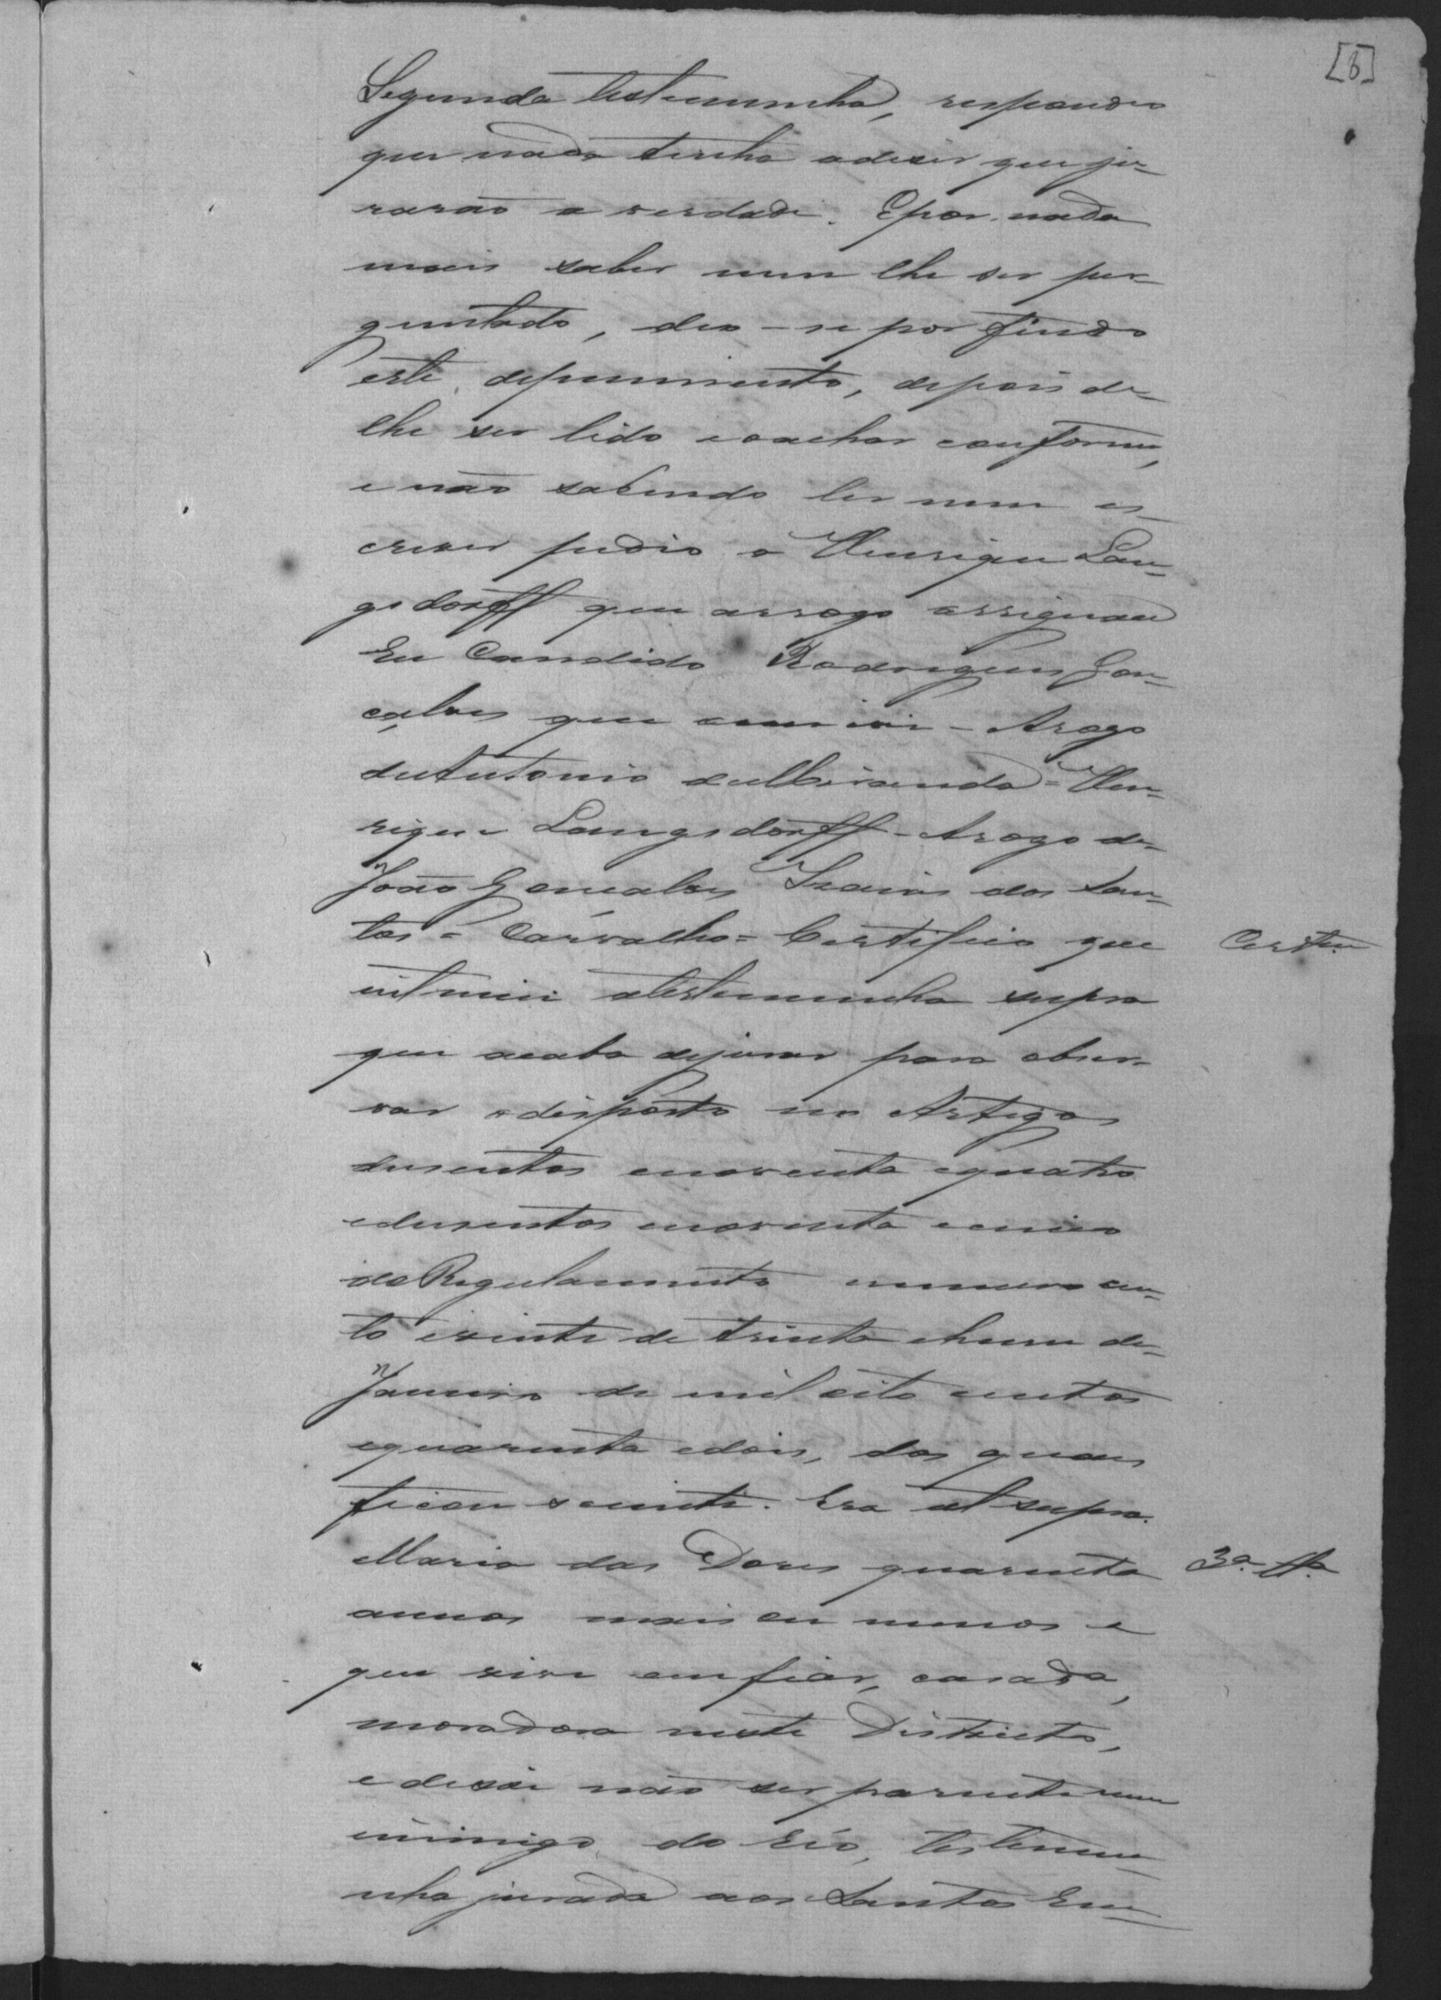 [8]
Segunda testemunha, respondeo
que nada tinha adizer que ju-
rarão a verdade. Epor nada
mais saber nem lhe ser per-
guntado, deo-se por findo
este depuimento, depois de
lhe ser lido e o achar conforme,
e não sabendo ler nem es-
crever pedio a Henrique Lan-
gsdorff que arrogo assignou
Eu Candido Rodrigues Gon-
çalves que escrivi - Arogo
de Antonio de Miranda = Hen-
rique Langsdorff - Arogo de
João Gonçalves Izaias dos San-
tos = Carvalho = Certifico que
Certm.
intimei atestemunha supra
que acaba dejurar para obser-
var odisposto no Artigos
dusentos enoventa equatro
edusentos enoventa ecinco
do Regulamento numero cen-
to evinte de trinta ehum de
Janeiro de mil oito centos
equarenta edois, dos quaes
ficou sciente. Era ut supra.
Maria das Dores quarenta
3ª. Tª.
annos mais ou menos e
que vive em fiar, casada,
moradora neste Districto,
e disse não ser parente nem
inimigo do Reo, testemu-
nha jurada aos Santos Evan-